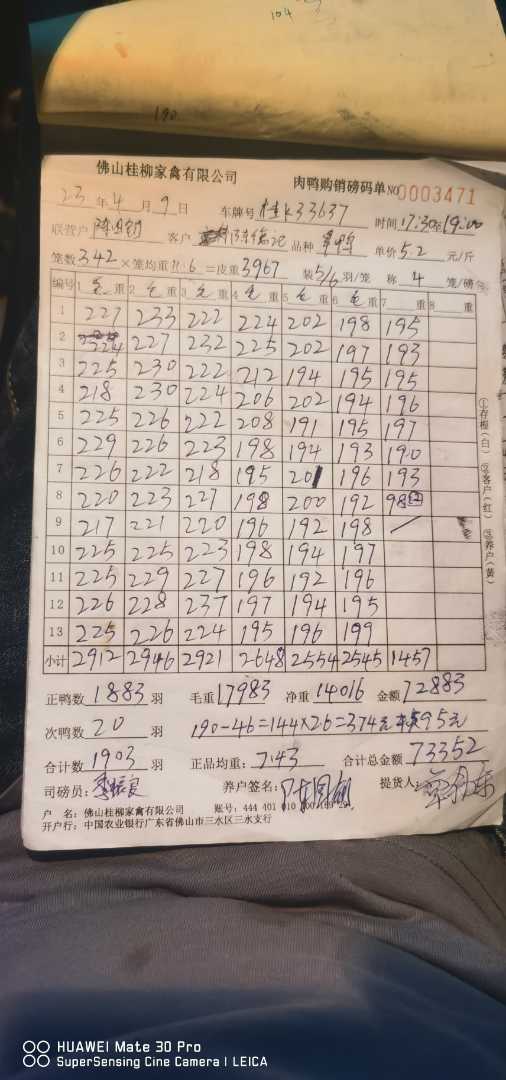 104
190
佛山桂柳家禽有限公司 肉鸭购销磅码单 NO 0003471
23 年 4 月 9 日 车牌号 桂K33637 时间 17:30至19:00
联营户 客户 品种 单价 5.2 元/斤
笼数 342 ×笼均重 11.6 =皮重 3967 装 5/6 羽/笼 称 4 笼/磅
编号 1 毛 重 2 毛 重 3 毛 重 4 毛 重 5 毛 重 6 毛 重 7 重 8 重
1 227 233 222 224 202 198 195
2 224 227 232 225 202 197 193
3 225 230 222 212 194 195 195
4 218 230 224 206 202 194 196
5 225 226 222 208 191 195 197
6 229 226 223 198 194 193 190
7 226 222 218 195 201 196 193
8 220 223 227 198 200 192 98
9 217 221 220 196 192 198
10 225 225 223 198 194 197
11 225 229 227 196 192 196
12 226 228 237 197 194 195
13 225 226 224 195 196 199
小计 2912 2946 2921 2648 2554 2545 1457
①存根(白) ②客户(红) ③养户(黄)
正鸭数 1883 羽 毛重 17983 净重 14016 金额 72883
次鸭数 20 羽 190-46=144×26=374元 95元
合计数 1903 羽 正品均重: 7.43 合计总金额 73352
司磅员: 养户签名: 提货人:
户 名: 佛山桂柳家禽有限公司 账号: 444 401 010
开户行: 中国农业银行广东省佛山市三水区三水支行
HUAWEI Mate 30 Pro
SuperSensing Cine Camera | LEICA